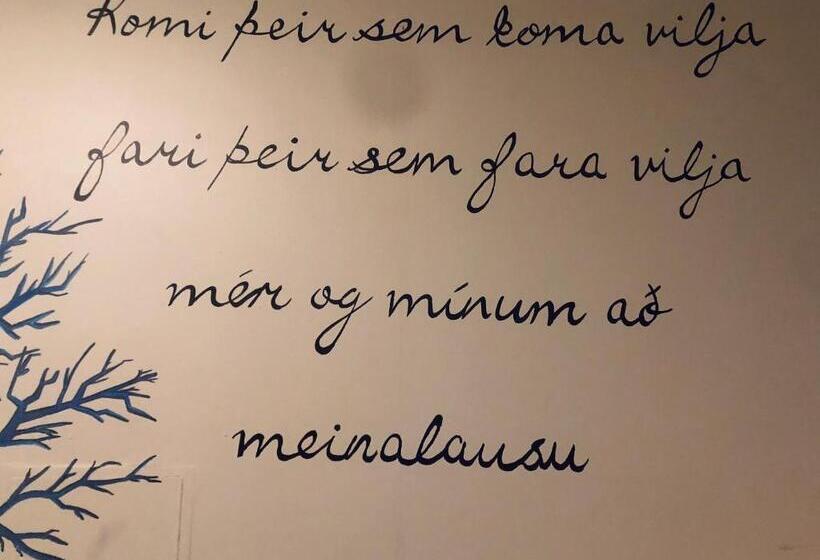 Komi þeir sem koma vilja
fari þeir sem fara vilja
mér og mínum að
meinalausu